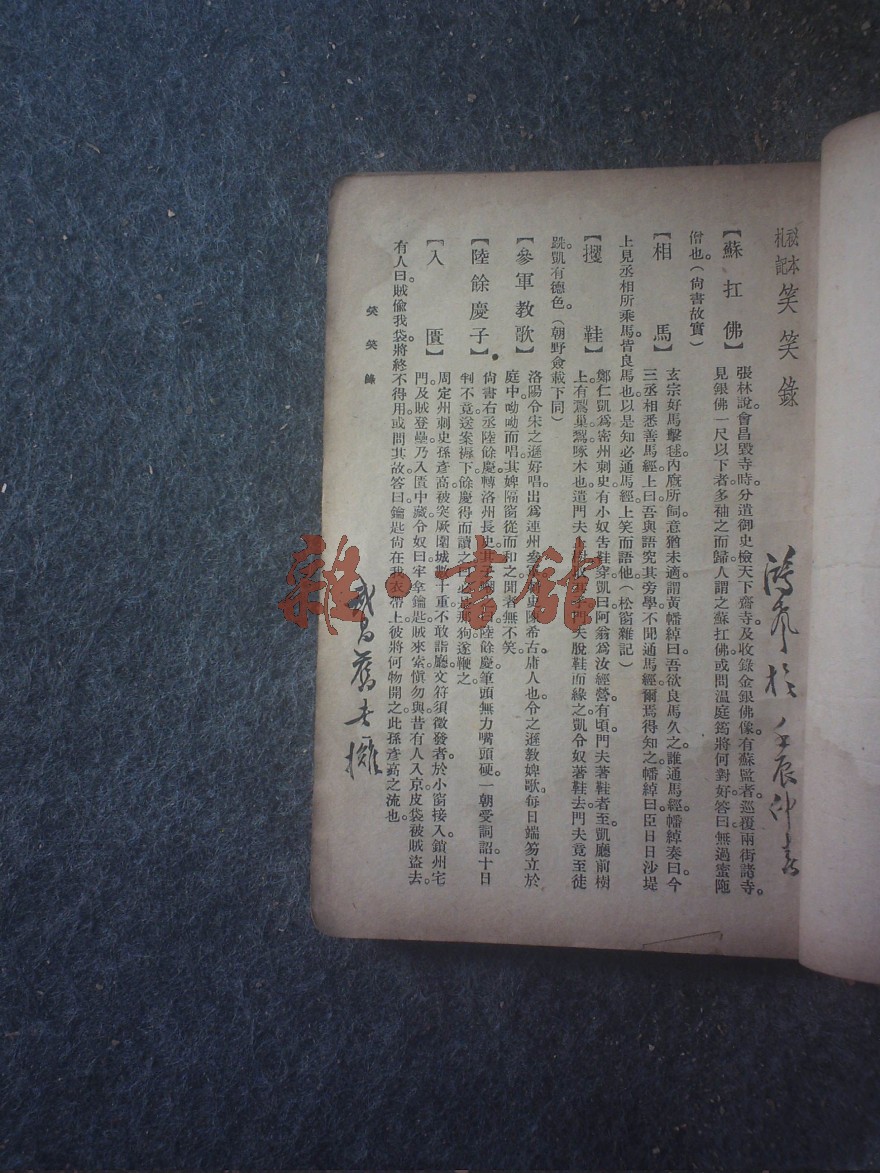 秘本
札記
笑笑錄
【蘇扛佛】張林說。會昌毀寺時。分遣御史檢天下齋寺。及收錄金銀佛像。有蘇監者。巡覆兩街諸寺。
見銀佛一尺以下者。多袖之而歸。人謂之蘇扛佛。或問温庭筠將何對。好答曰。無過蜜陁
僧也。（尙書故實）
【相馬】玄宗好馬擊毬。內廐所飼。意猶未適。謂黃幡綽曰。吾欲良馬久之。誰通馬經。幡綽奏曰。今
三丞相悉善馬經。上曰。吾與語究其旁學。不聞通馬經。爾焉得知之。幡綽曰。臣日日沙堤
上見丞相所乘馬。皆良馬也。以是知必通馬經。上笑而語他。（松窗雜記）
【攫鞋】鄭仁凱爲密州刺史。有小奴告鞋穿。凱曰。阿翁爲汝經營。有頃門夫著鞋者至。凱廳前樹
上有鴷巢。鴷啄木也。遣門夫上樹取其子。門夫脫鞋而緣之。凱令奴著鞋去。門夫竟至徒
跣。凱有德色。（朝野僉載下同）
【參軍教歌】洛陽令宋之遜好唱。出爲連州參軍。刺史陳希古庸人也。令之遜教婢歌。每日端笏立於
庭中。呦呦而唱。其婢隔窗從而和之。聞者無不笑。
【陸餘慶子】尙書右丞陸餘慶轉洛州長史。其子嘲之曰。陸餘慶。筆頭無力嘴頭硬。一朝受詞訟。十日
判不竟。送案褥下。餘慶得而讀之曰。必是那狗。遂鞭之。
【入匱】周定州刺史孫彥高。被突厥圍城數十重。不敢詣廳。文符須徵發者。於小窗接入。鎖州宅
門。及賊登壘。乃入匱中藏。令奴曰。牢拿鑰匙。賊來索愼勿與。昔有人入京。皮袋被賊盜去。
有人曰。賊偷我袋。將終不得用。或問其故。答曰。鑰匙尙在我衣帶上。彼將何物開之。此孫彥高之流也。
笑笑錄
雜·書館